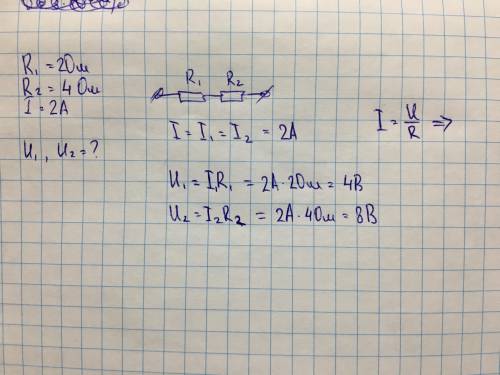 R₁ = 2 Ом
R₂ = 4 Ом
I = 2A
U₁, U₂ = ?
R₁ R₂
I = I₁ = I₂ = 2A
U₁ = I₁R₁ = 2A · 2 Ом = 4В
U₂ = I₂R₂ = 2A · 4 Ом = 8В
I = U/R ⇒